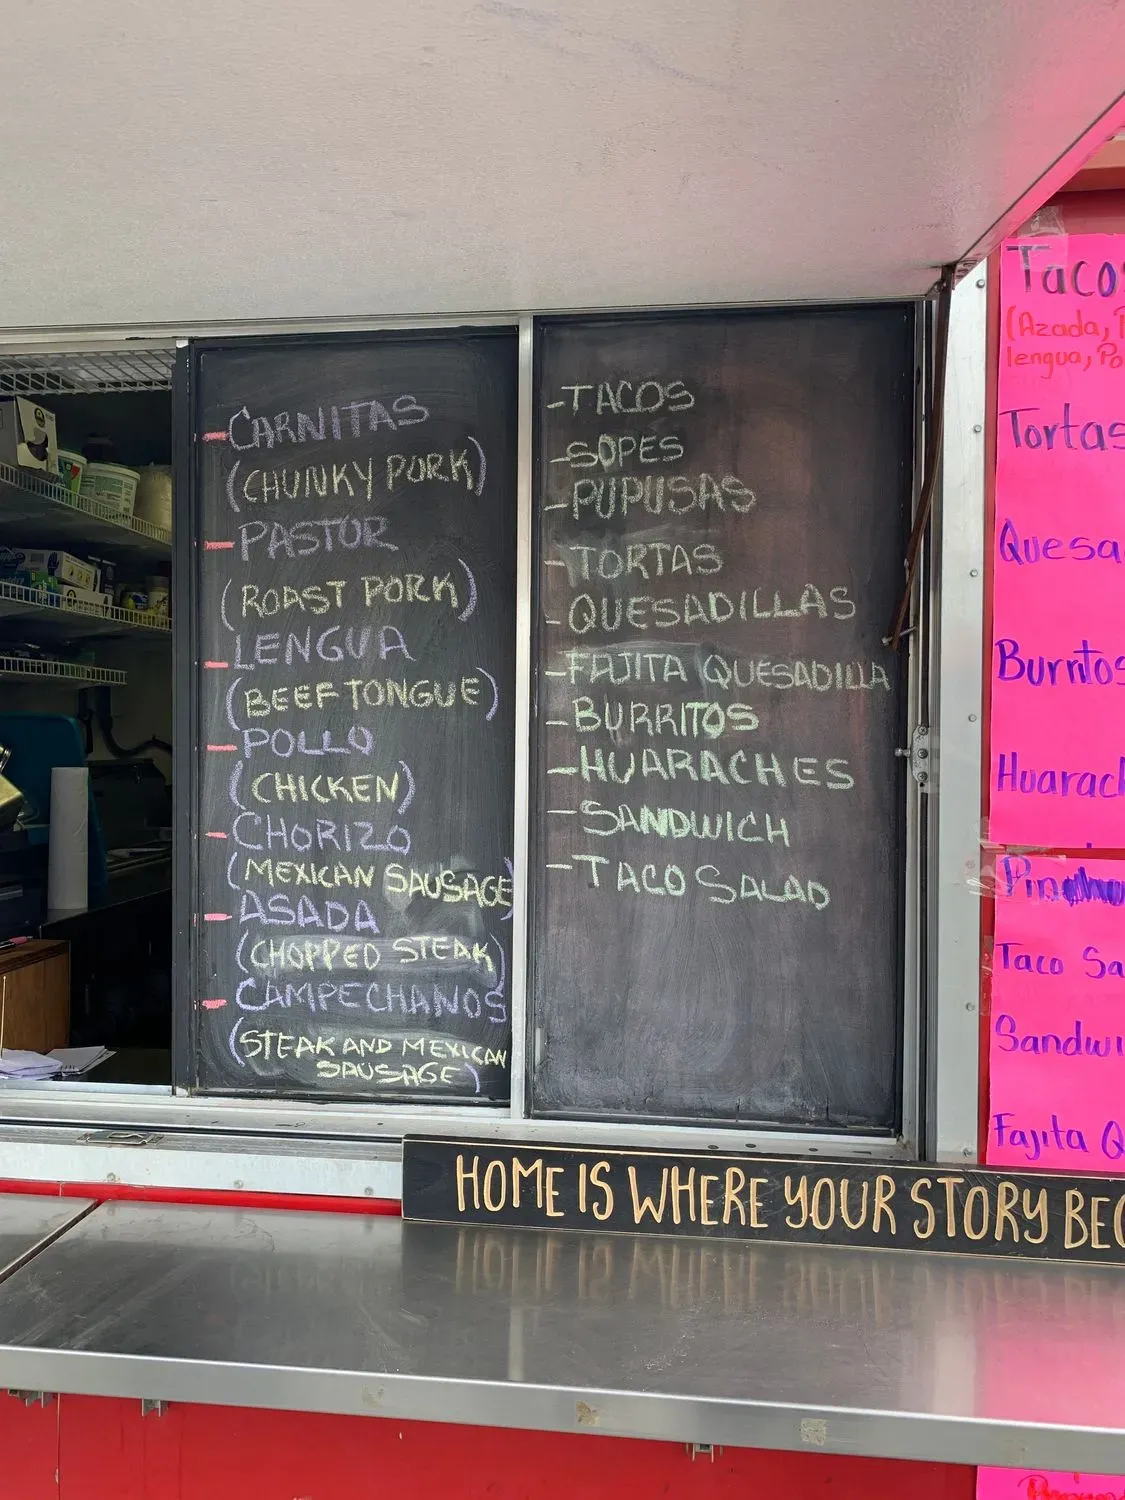 - CARNITAS
(CHUNKY PORK)
- PASTOR
(ROAST PORK)
- LENGUA
(BEEF TONGUE)
- POLLO
(CHICKEN)
- CHORIZO
(MEXICAN SAUSAGE)
- ASADA
(CHOPPED STEAK)
- CAMPECHANOS
(STEAK AND MEXICAN
SAUSAGE)
- TACOS
- SOPES
- PUPUSAS
- TORTAS
- QUESADILLAS
- FAJITA QUESADILLA
- BURRITOS
- HUARACHES
- SANDWICH
- TACO SALAD
Tacos
(Azada,
lengua, Po
Tortas
Quesa
Burritos
Huarach
Taco Sa
Sandwi
Fajita Q
HOME IS WHERE YOUR STORY BEG